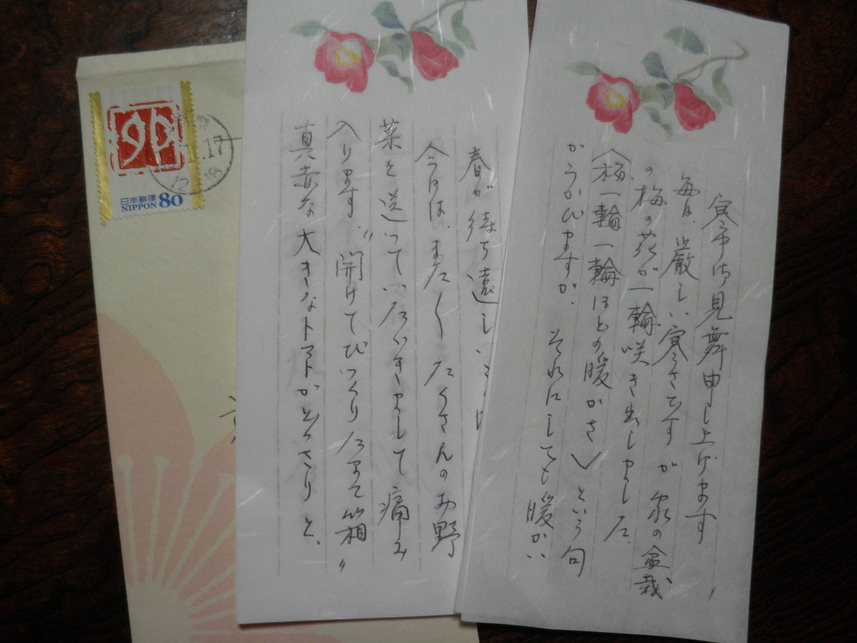 寒中お見舞申し上げます
毎日、厳しい寒さですが家の盆栽
の梅の花が一輪咲き出しました。
〈梅一輪一輪ほどの暖かさ〉という句
がうかびますが、それにしても暖かい
春が待ち遠しい
今日は、またたくさんのお野
菜を送っていただきまして痛み
入ります。〃開けてびっくり玉手箱〃
真赤な大きなトマトがどっさりと、
卯
17
12-18
日本郵便
NIPPON 80